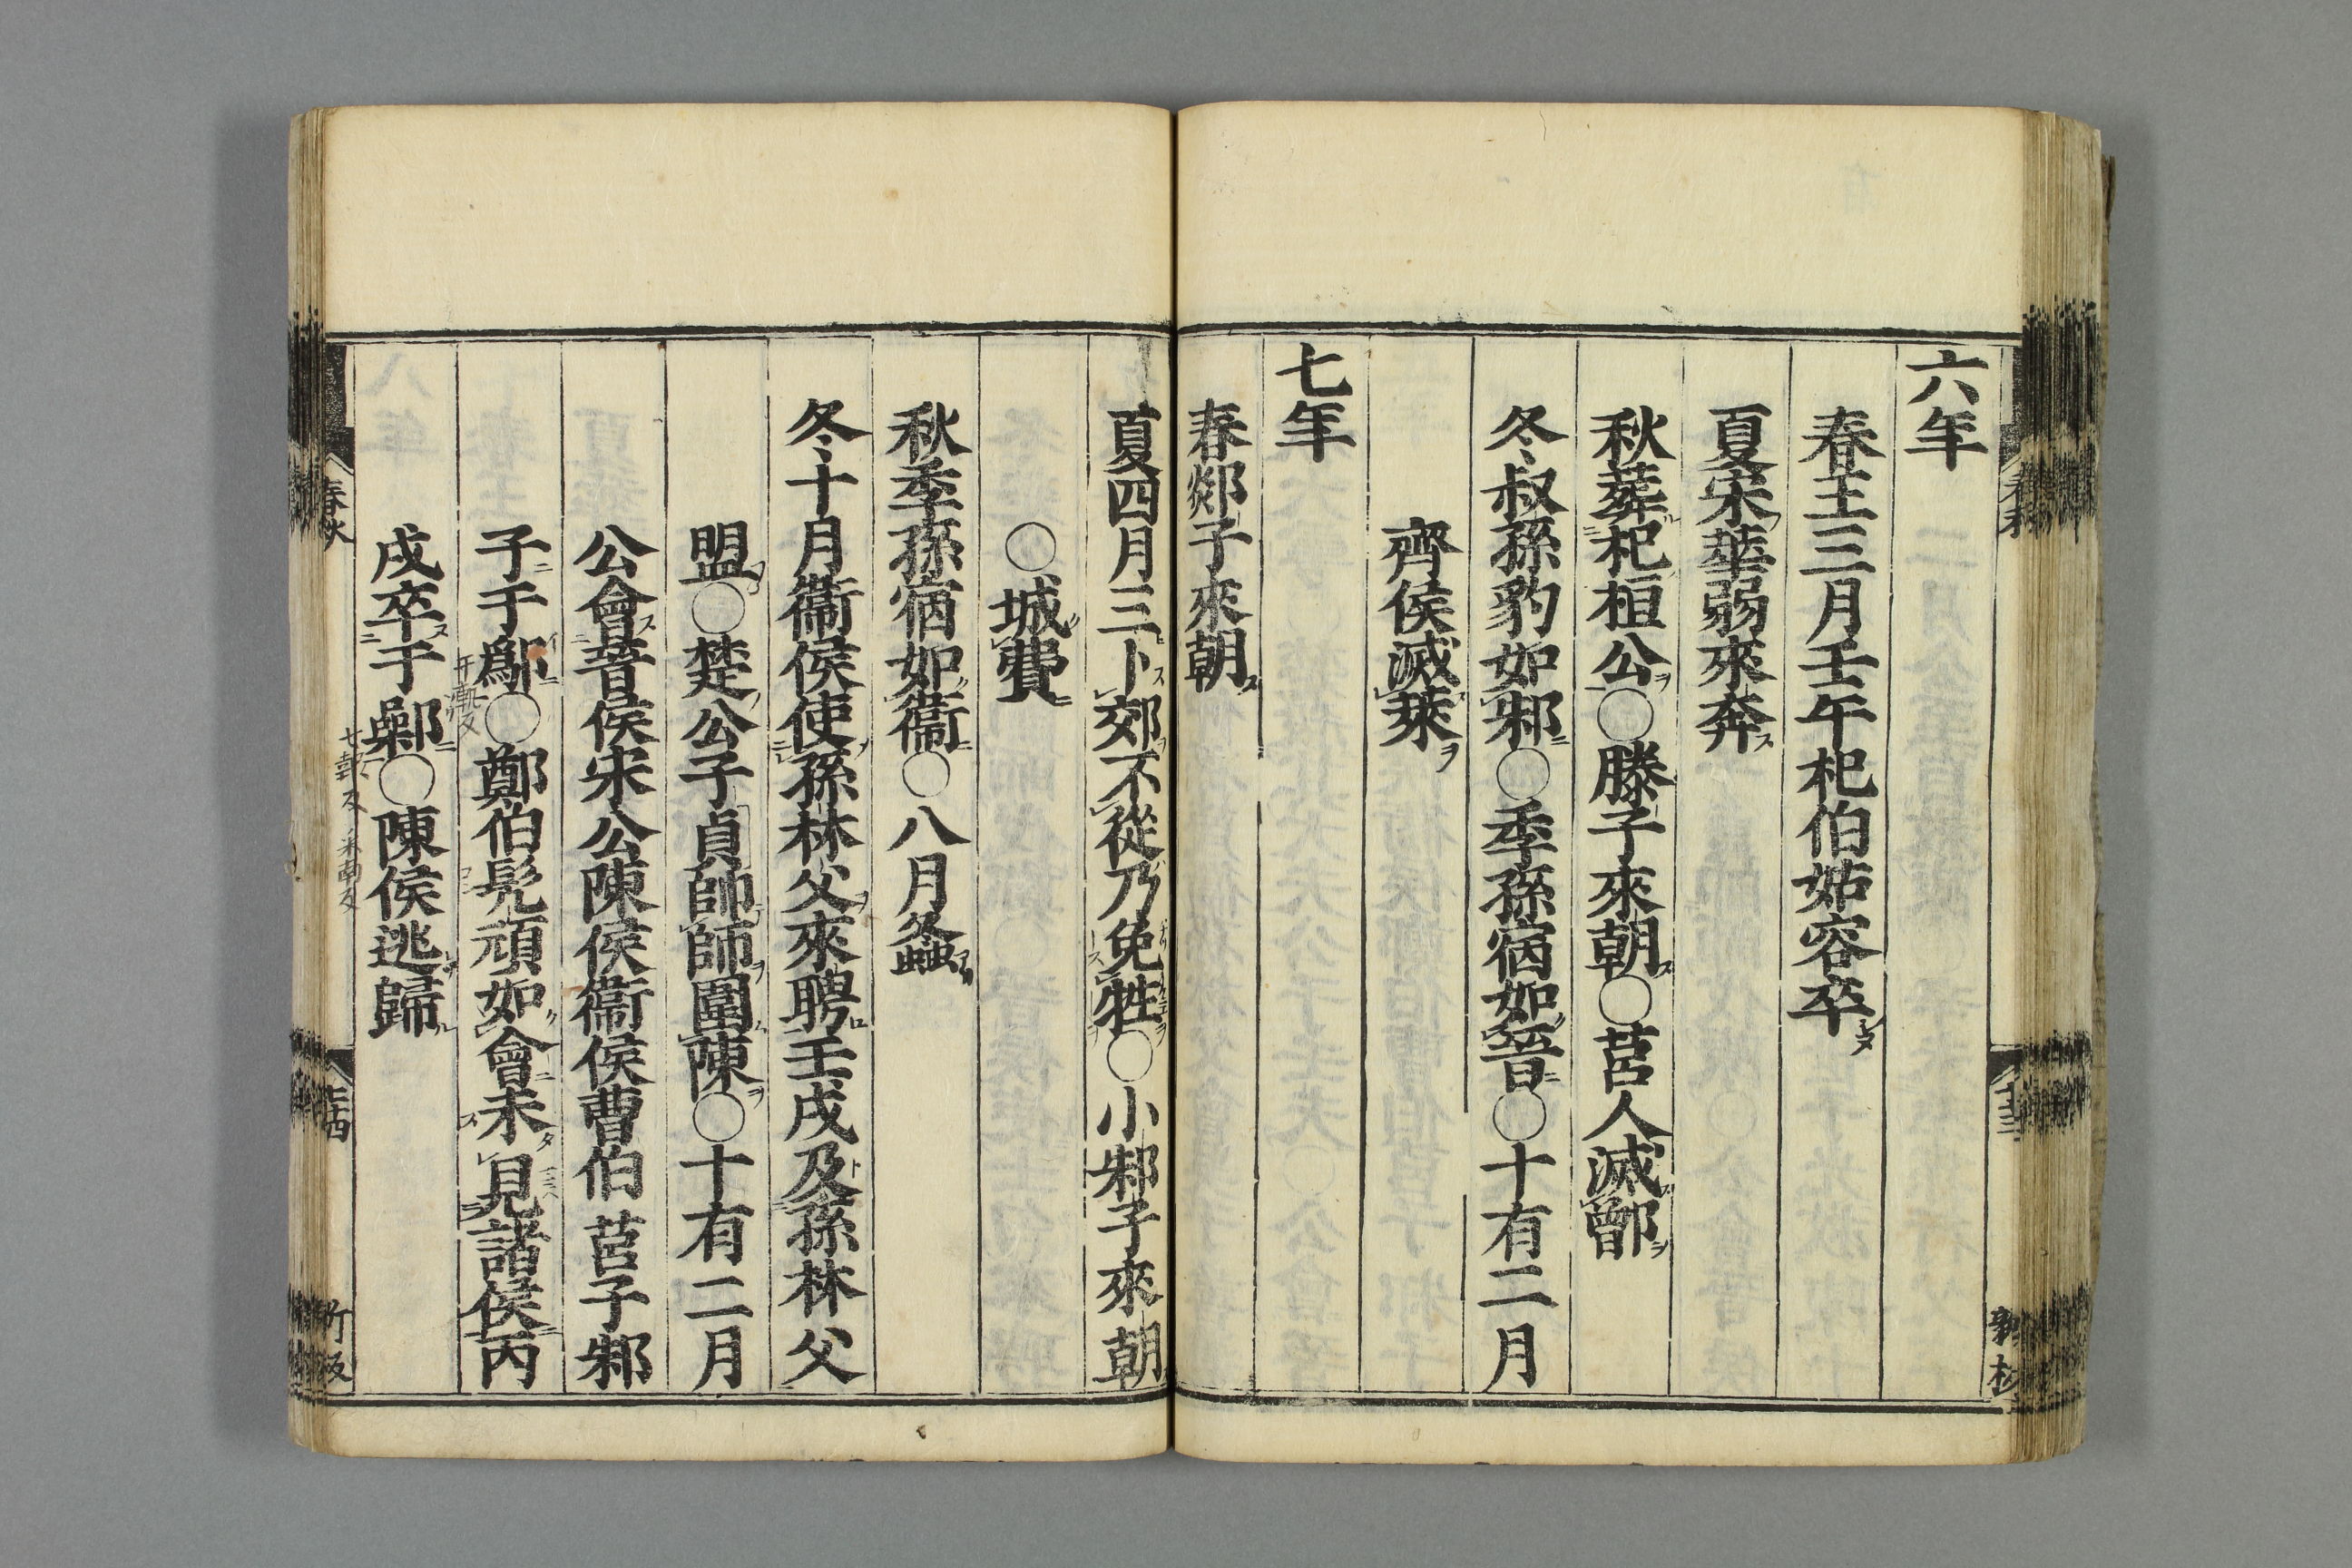 六年
春王三月壬午杞伯姑容卒
夏宋華弱來奔
秋葬杞桓公○滕子來朝○莒人滅鄫
冬叔孫豹如邾○季孫宿如晉○十有二月
齊侯滅萊
七年
春郯子來朝
夏四月三卜郊不從乃免牲○小邾子來朝
○城費
秋季孫宿如衞○八月螽
冬十月衞侯使孫林父來聘壬戌及孫林父
盟○楚公子貞帥師圍陳○十有二月
公會晉侯宋公陳侯衞侯曹伯莒子邾
子于鄬○鄭伯髡頑如會未見諸侯丙
戌卒于鄵○陳侯逃歸
春秋